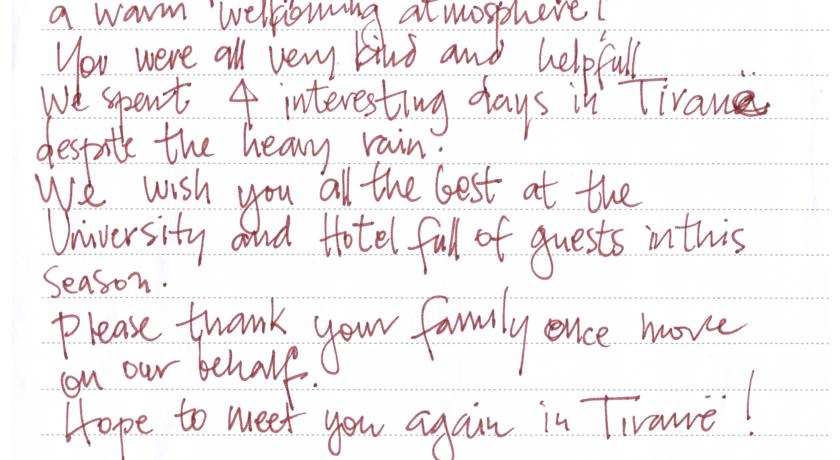 a warm welcoming atmosphere!
You were all very kind and helpfull
We spent 4 interesting days in Tiranë
despite the heavy rain.
We wish you all the best at the
University and Hotel full of guests in this
season.
Please thank your family once more
on our behalf.
Hope to meet you again in Tiranë!